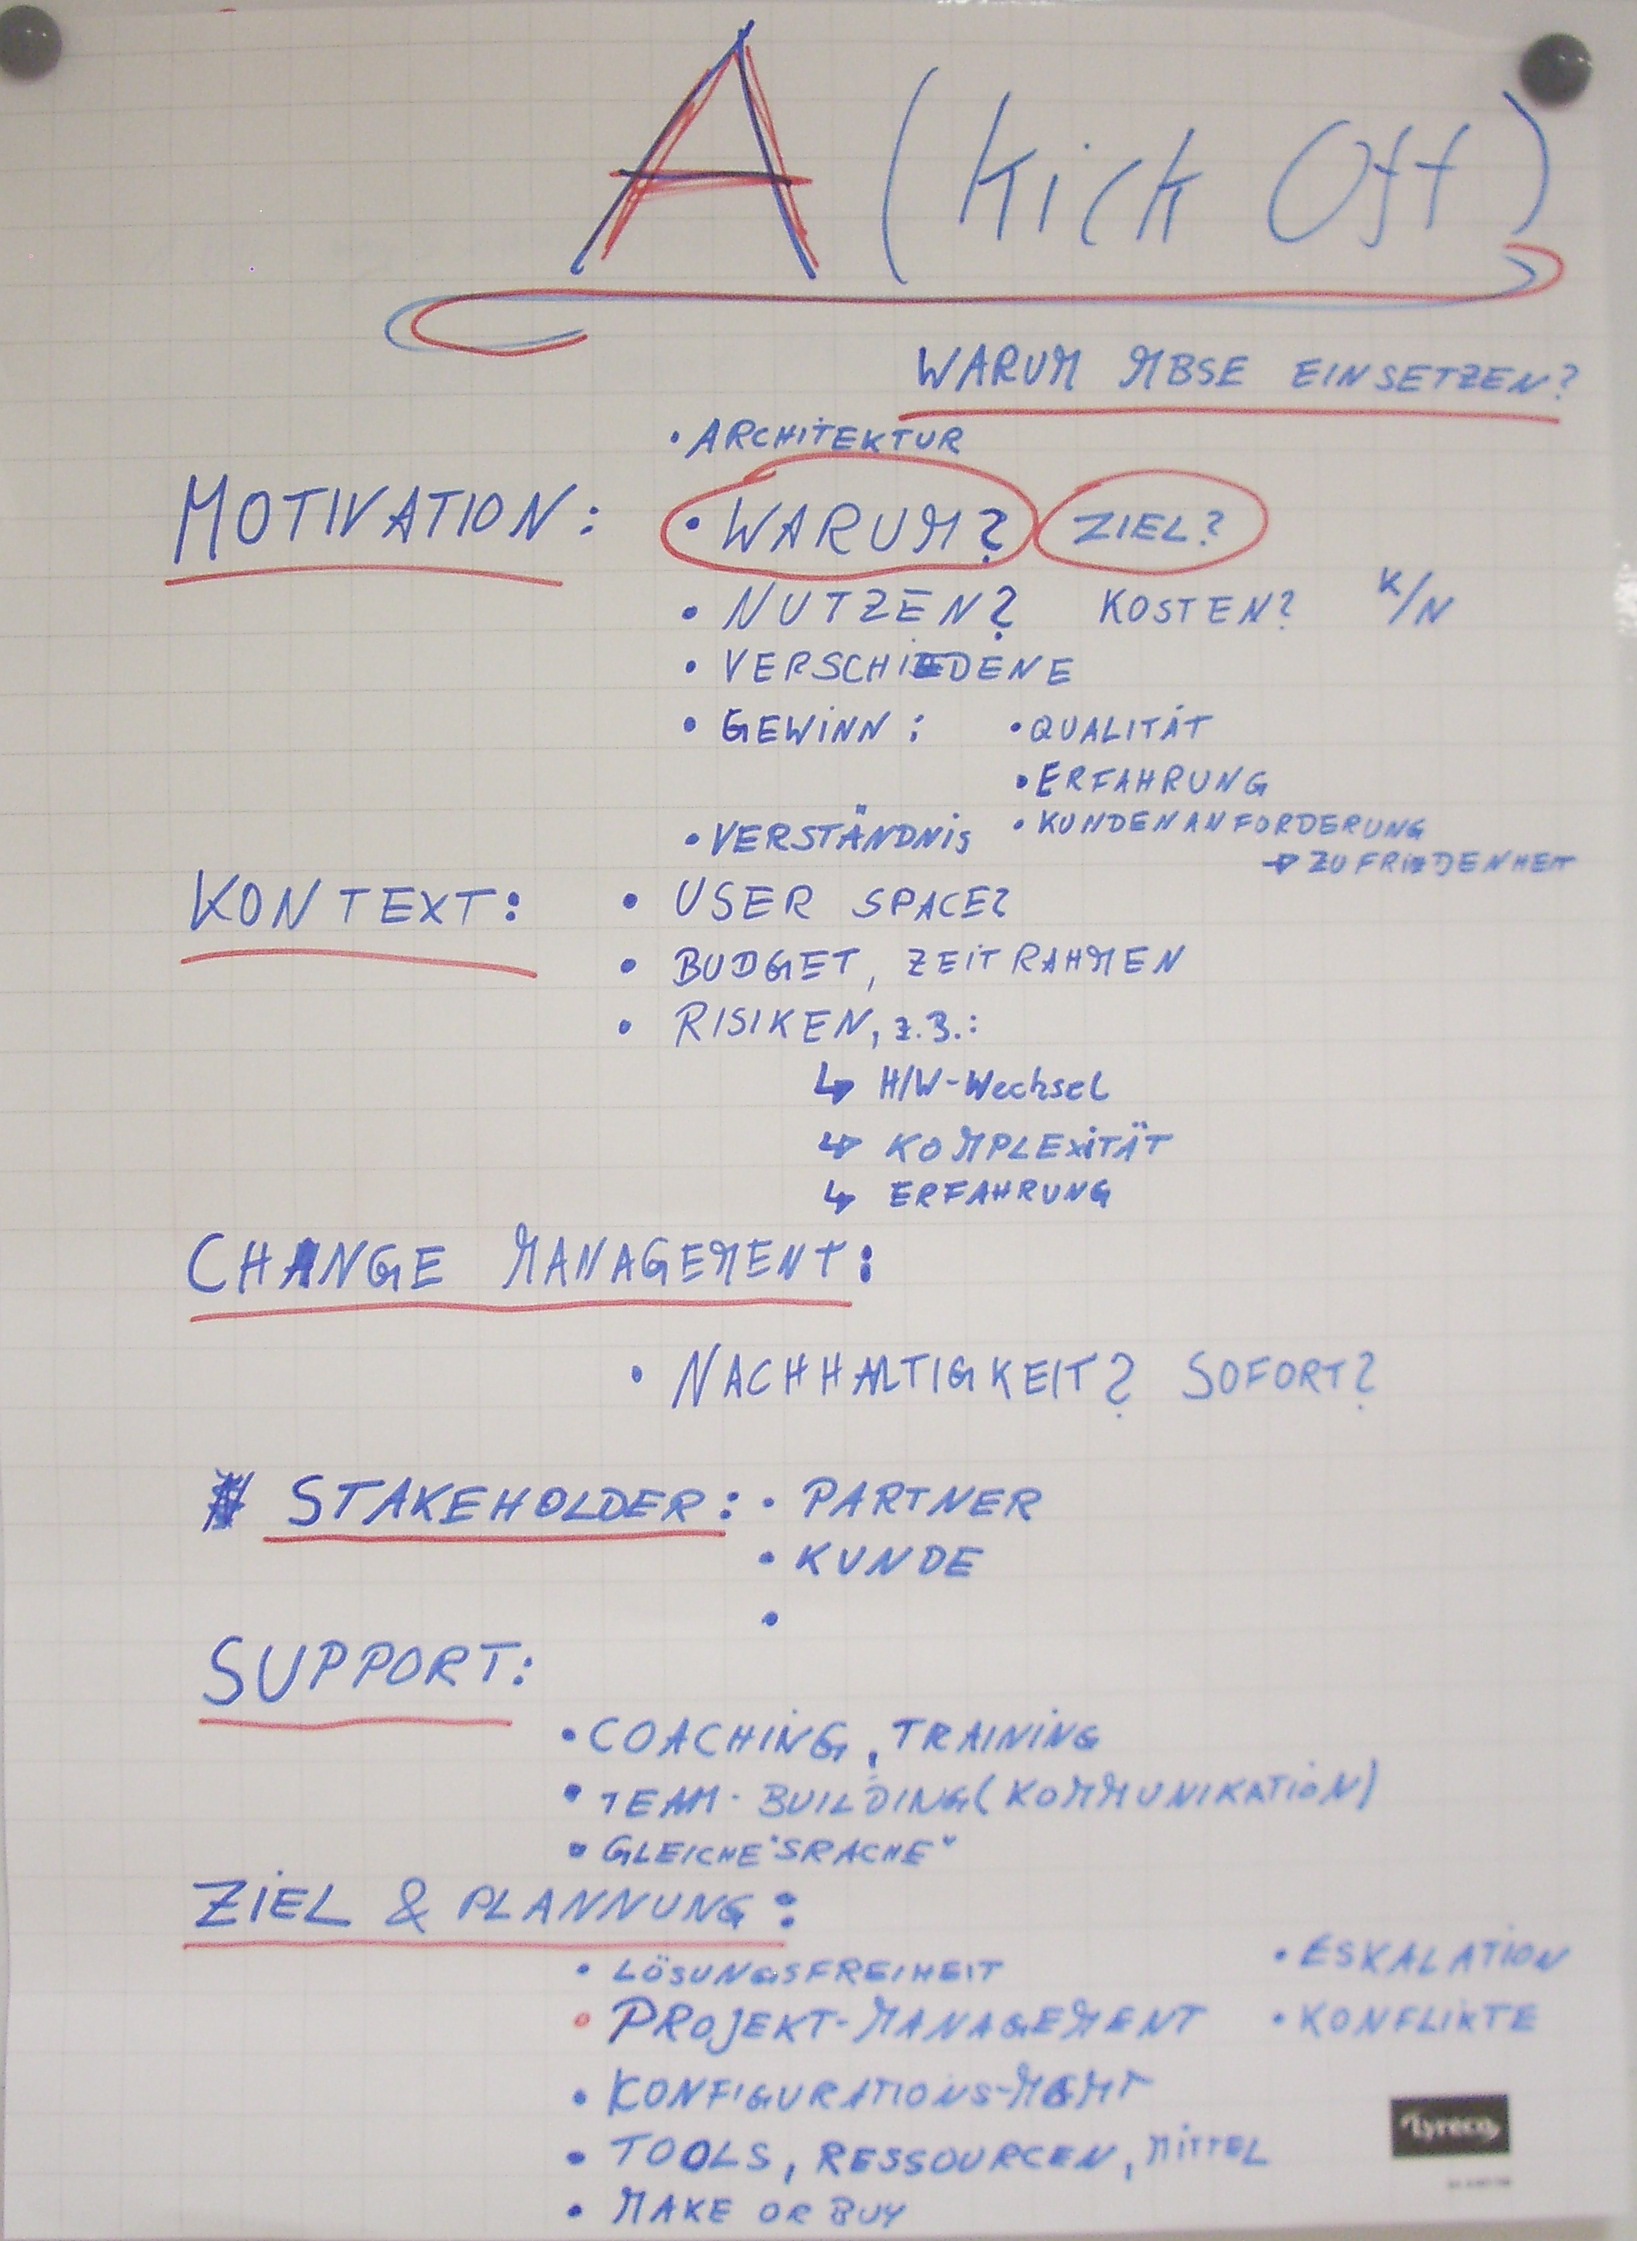 A (Kick Off)
WARUM MBSE EINSETZEN?
• ARCHITEKTUR
MOTIVATION: • WARUM? ZIEL?
• NUTZEN? KOSTEN? K/N
• VERSCHIEDENE
• GEWINN: • QUALITÄT
• ERFAHRUNG
• VERSTÄNDNIS • KUNDENANFORDERUNG
→ ZUFRIEDENHEIT
KONTEXT: • USER SPACE?
• BUDGET, ZEITRAHMEN
• RISIKEN, z.B.:
↳ H/W-Wechsel
↳ KOMPLEXITÄT
↳ ERFAHRUNG
CHANGE MANAGEMENT:
• NACHHALTIGKEIT? SOFORT?
STAKEHOLDER: • PARTNER
• KUNDE
•
SUPPORT:
• COACHING, TRAINING
• TEAM-BUILDING (KOMMUNIKATION)
• GLEICHE "SRACHE"
ZIEL & PLANNUNG:
• LÖSUNGSFREIHEIT • ESKALATION
• PROJEKT-MANAGEMENT • KONFLIKTE
• KONFIGURATIONS-MGMT
• TOOLS, RESSOURCEN, MITTEL
• MAKE OR BUY
Lyreco